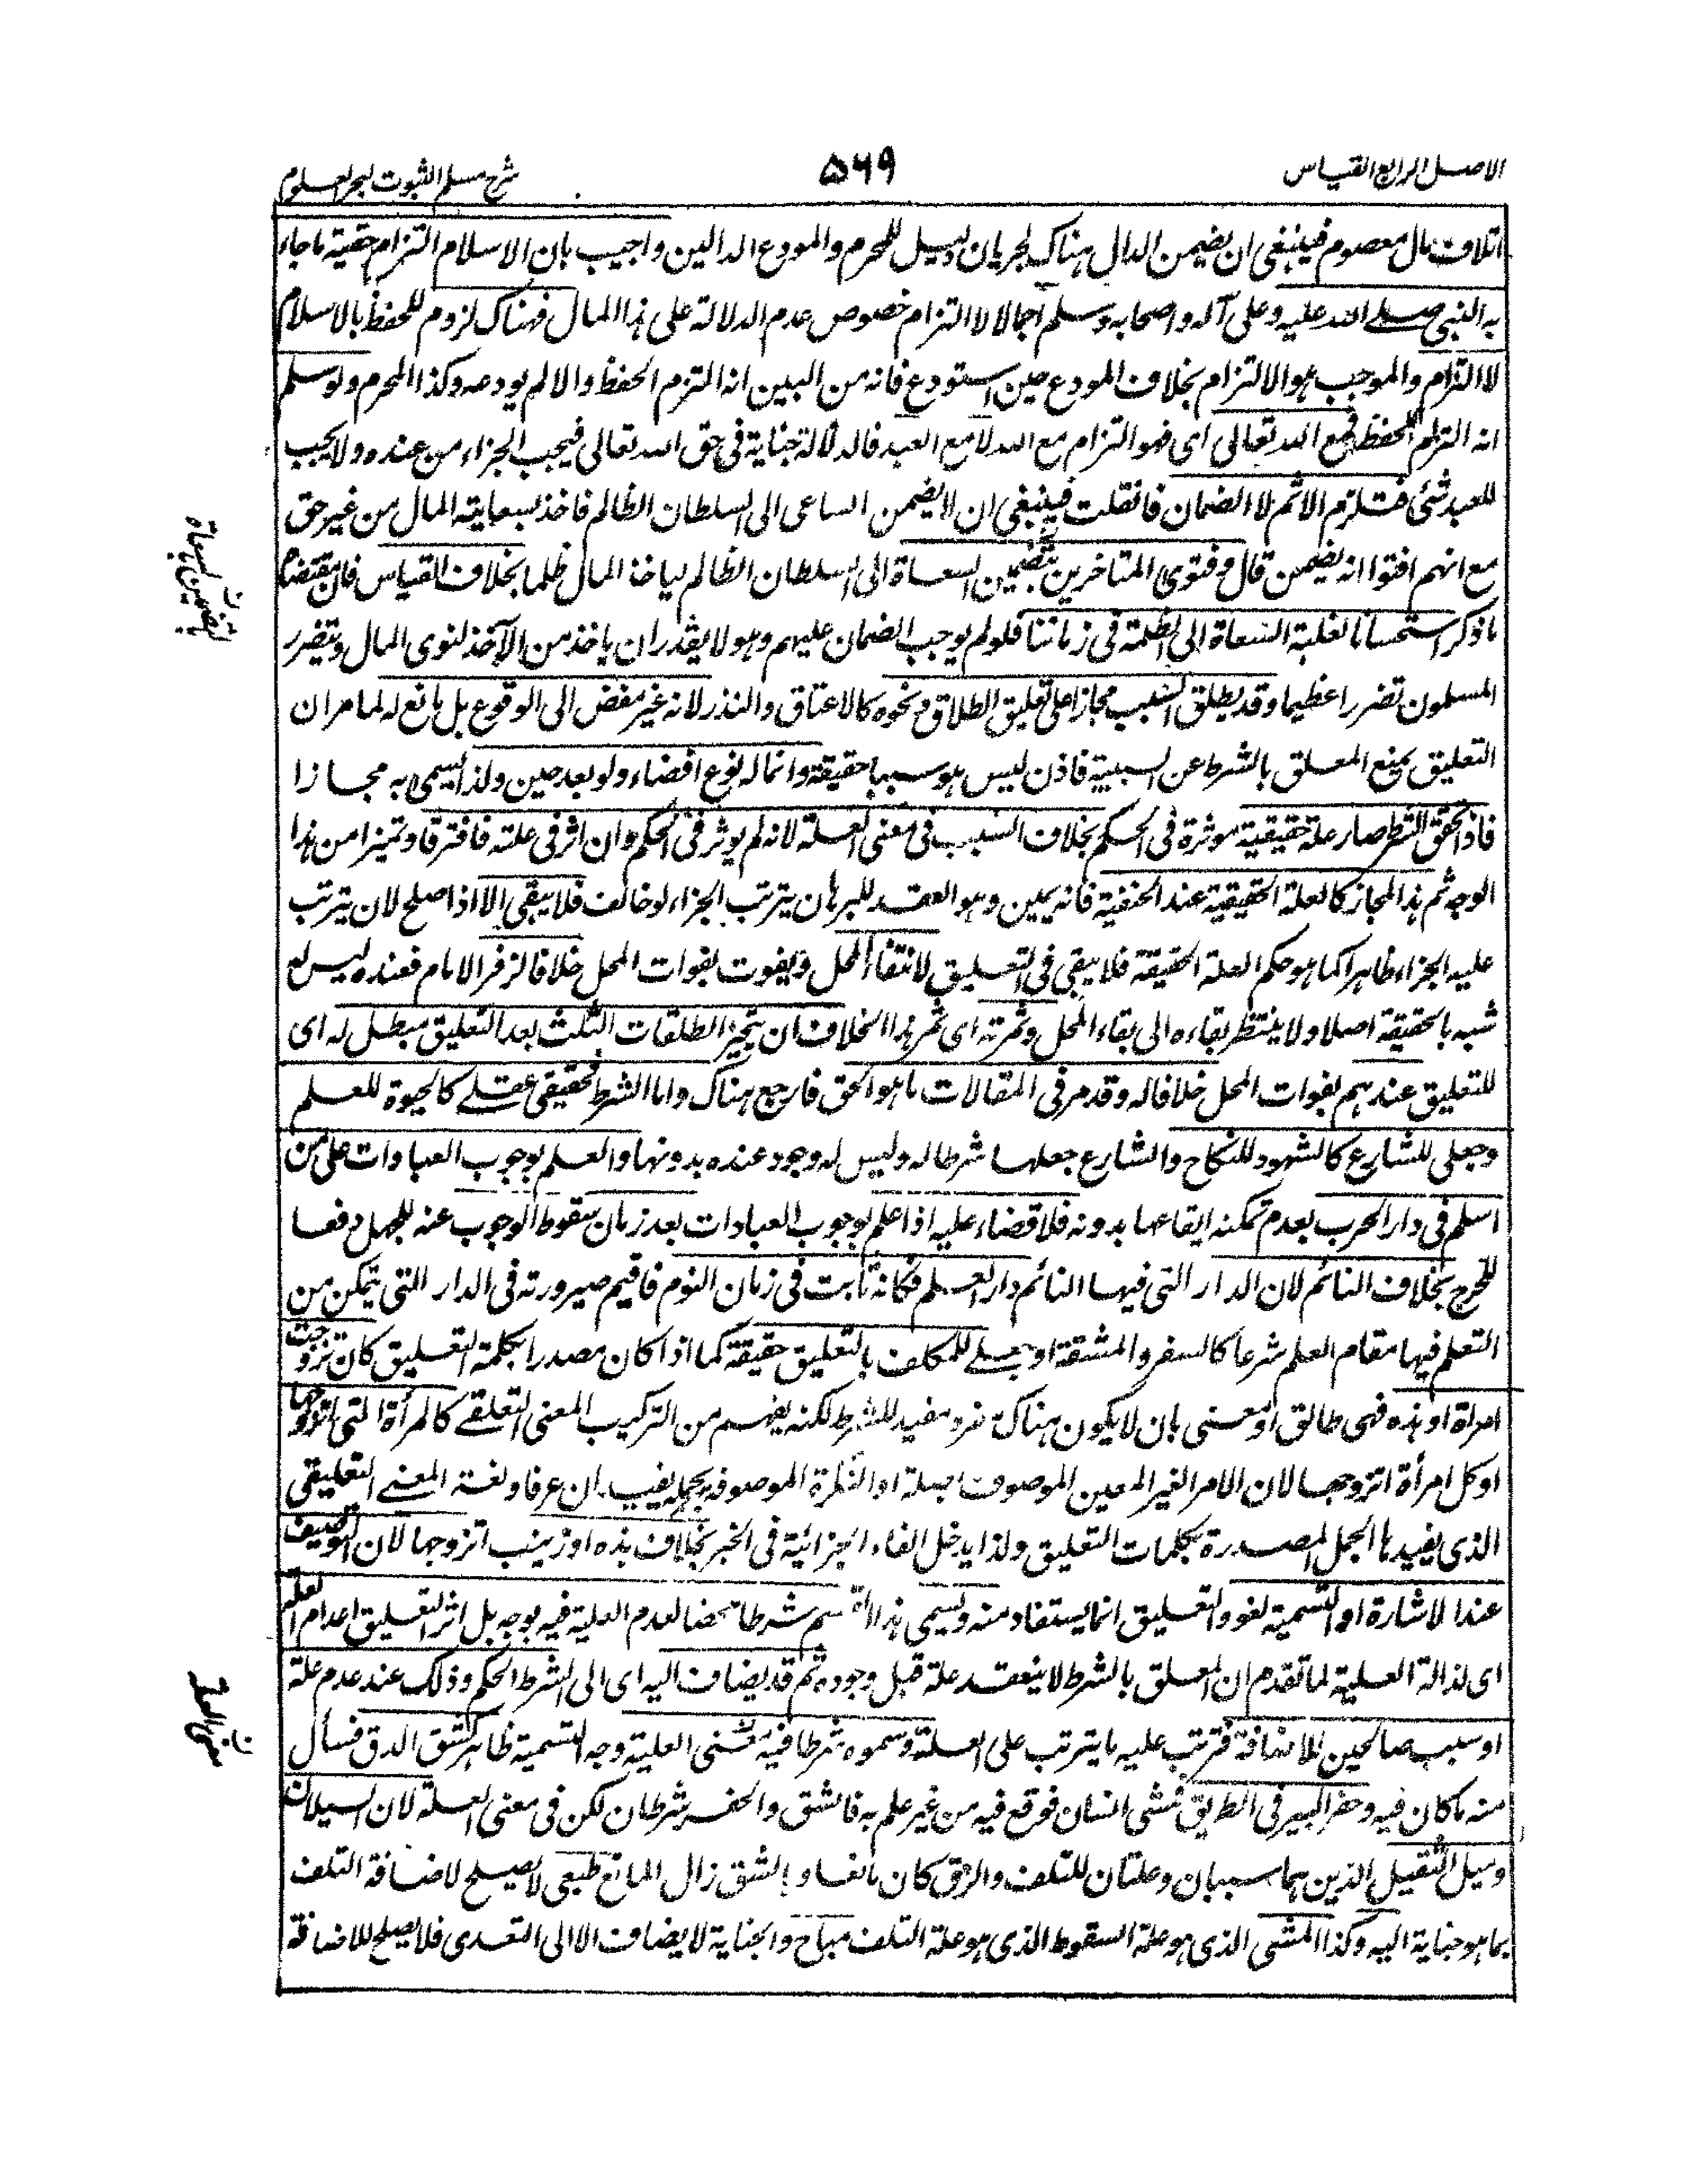 الاصل الرابع القياس
٥٦٩
شرح مسلم الثبوت لبحر العلوم
اتلاف مال معصوم فينبغى ان يضمن الدال هناك لجريان دليل المحرم والمودع الدالين واجيب بان الاسلام التزام حقية ما جاء
به النبى صلے الله عليه وعلى آله واصحابه وسلم اجمالا لا التزام خصوص عدم الدلالة على هذا المال فهناك لزوم للحفظ بالاسلام
لا التزام والموجب هو الالتزام بخلاف المودع حين استودع فانه من البين انه التزم الحفظ والا لم يودعه وكذا المحرم ولو سلم
انه التزام الحفظ فمع الله تعالى اى فهو التزام مع الله لا مع العبد فالدلالة جناية فى حق الله تعالى فيجب الجزاء من عنده ولا يجب
للعبد شئ فتلزم الاثم لا الضمان فان قلت فينبغى ان لا يضمن الساعى الى السلطان الظالم فاخذ بسعايته المال من غير حق
مع انهم افتوا انه يضمن قال وفتوى المتاخرين بتضمين السعاة الى السلطان الظالم لياخذ المال ظلما بخلاف القياس فان مقتضاه
ما ذكر استحسانا لغلبة السعاة الى الظلمة فى زماننا فلو لم يوجب الضمان عليهم وهو لا يقدر ان ياخذ من الآخذ لتوى المال ويتضرر
المسلمون تضررا عظيما وقد يطلق السبب مجازا على تعليق الطلاق ونحوه كالاعتاق والنذر لانه غير مفض الى الوقوع بل مانع له لما مر ان
التعليق يمنع المعلق بالشرط عن السببية فاذن ليس هو سببا حقيقة وانما له نوع افضاء ولو بعد حين ولذا يسمى به مجازا
فاذا تحقق الشرط صار علة حقيقية موثرة فى الحكم بخلاف السبب فى معنى العلة لانه لم يوثر فى الحكم وان اثر فى علته فافترقا وتميزا من هذا
الوجه ثم هذا المجاز كالعلة الحقيقية عند الحنفية فانه يمين وهو العقد للبر بان يترتب الجزاء لو خالف فلا يبقى الا اذا صلح لان يترتب
عليه الجزاء ظاهرا كما هو حكم العلة الحقيقة فلا يبقى فى التعليق لانتفاء المحل ويفوت بفوات المحل خلافا لزفر الامام فعنده ليس له
شبه بالحقيقة اصلا ولا ينتظر بقاءه الى بقاء المحل وثمرته اى ثمر هذا الخلاف ان تنجيز الطلقات الثلث بعد التعليق مبطل له اى
للتعليق عندهم بفوات المحل خلافا له وقد مر فى المقالات ما هو الحق فارجع هناك واما الشرط فحقيقى عقلے كالحيوة للعلم
وجعلى للشارع كالشهود للنكاح والشارع جعلها شرطا له وليس له وجود عنده بدونها والعلم بوجوب العبادات على من
اسلم فى دار الحرب بعدم تمكنه ايقاعها بدونه فلا قضاء عليه اذا علم بوجوب العبادات بعد زمان سقوط الوجوب عنه للجهل دفعا
للحرج بخلاف النائم لان الدار التى فيها النائم دار العلم فكانه ثابت فى زمان النوم فاقيم صيرورته فى الدار التى يتمكن من
التعلم فيها مقام العلم شرعا كالسفر والمشقة او جعلے للمكلف بالتعليق حقيقة كما اذا كان مصدرا بكلمة التعليق كان تزوجت
امراة او هذه فهى طالق او معنى بان لا يكون هناك مفرد مفيد للشرط لكنه يفهم من التركيب المعنى التعلقے كالمرأة التى اتزوجها
او كل امرأة اتزوجها لان الامر الغير المعين الموصوف بصلة او النكرة الموصوفة بجملة يفيدان عرفا ولغة المعنے التعليقى
الذى يفيدها الجمل المصدرة بكلمات التعليق ولذا يدخل الفاء الجزائية فى الخبر بخلاف هذه او زينب اتزوجها لان التوصيف
عند الاشارة او التسمية لغو والتعليق انما يستفاد منه ويسمى هذا القسم شرطا محضا لعدم العلية فيه بوجه بل اثر التعليق اعدام العلة
اى لذالة العلية لما تقدم ان المعلق بالشرط لا ينعقد علة قبل وجوده ثم قد يضاف اليه اى الى الشرط الحكم وذلك عند عدم علة
او سبب صالحين للاضافة فترتب عليه ما يترتب على العلة وسموه شرطا فيه معنى العلية وجه التسمية ظاهر كشق الدق فسأل
منه ما كان فيه وحفر البير فى الطريق فمشى انسان فوقع فيه من غير علم به فالشق والحفر شرطان لكن فى معنى العلة لان السيلان
وميل الثقيل الذين هما سببان وعلتان للتلف والزق كان مانعا وبالشق زال المانع طبعى لا يصلح لاضافة التلف
بما هو جناية اليه وكذا المشى الذى هو علة السقوط الذى هو علة التلف مباح والجناية لا يضاف الا الى التعدى فلا يصلح للاضافة